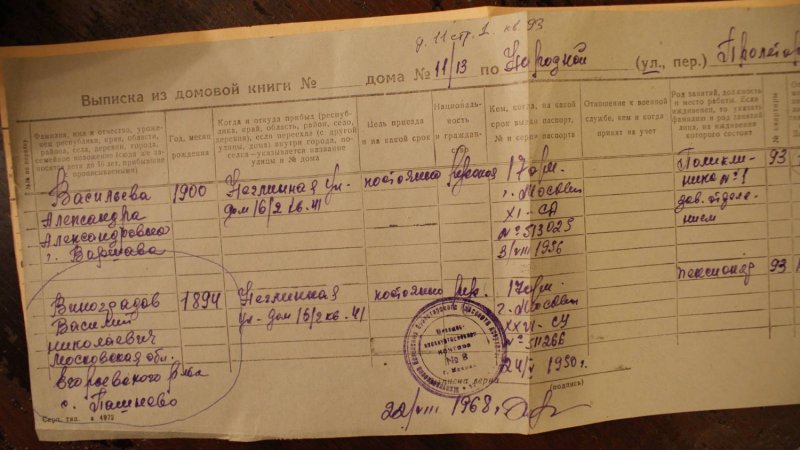 д. 11 стр. 1 кв. 93
Выписка из домовой книги № дома № 11/13 по Народной (ул., пер.) Пролетар
№№ по порядку
Фамилия, имя и отчество, урожен.
республики, края, области, района,
села, деревни, города,
семейное положение
носятся дети до 16 лет, прибывшие
с прописываемыми)
Год, месяц
рождения
Когда и откуда прибыл (респуб-
лика, край, область, район, село,
деревня), если переехал (с другой
улицы, дома) внутри города, по-
селка—указывается название
улицы и № дома
Цель приезда
и на какой срок
Националь-
ность
и граждан-
Кем, когда, на какой
срок выдан паспорт,
№ и серия паспорта
Отношение к военной
службе, кем и когда
принят на учет
Род занятий, должность
и место работы. Если
иждивенец, то указать
фамилию и род занятий
лица, на иждивении
которого состоит
№ квартиры
Васильева
Александра
Александровна
г. Варшава
1900
Неглинная ул.
дом 16/2 кв. 41
постоянно
русская
17 о/м.
г. Москвы
XI - СА
№ 513025
3/VIII 1956
Поликли-
ника № 1
зав. отделе-
нием
93
Виноградов
Василий
Николаевич
Московская обл.
Егорьевского р-на
с. Пашнево
1894
Неглинная
ул. дом 16/2 кв. 41
постоянно
рус.
17 о/м.
г. Москвы
XXVI - СУ
№ 511266
24/V 1950 г.
пенсионер
93
№ 8
г. Москва
верна
(подпись)
22/VIII 1968 г.
Серп. тип. з 4972